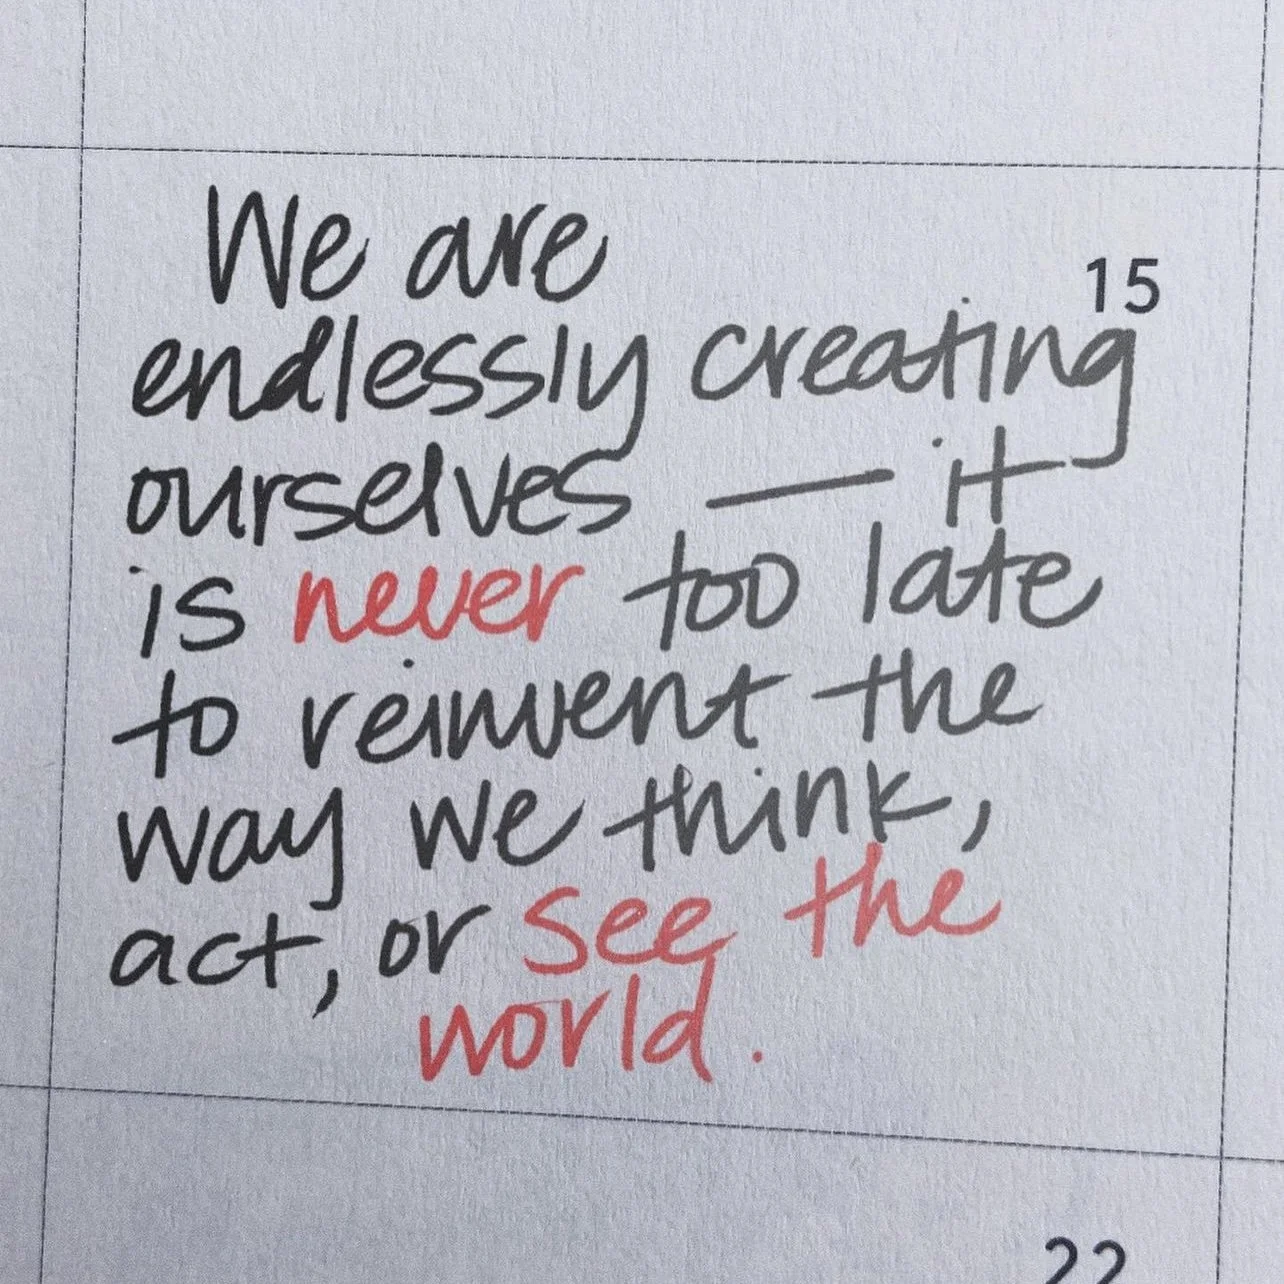 We are
15
endlessly creating
ourselves — it
is never too late
to reinvent the
way we think,
act, or see the
world.
22